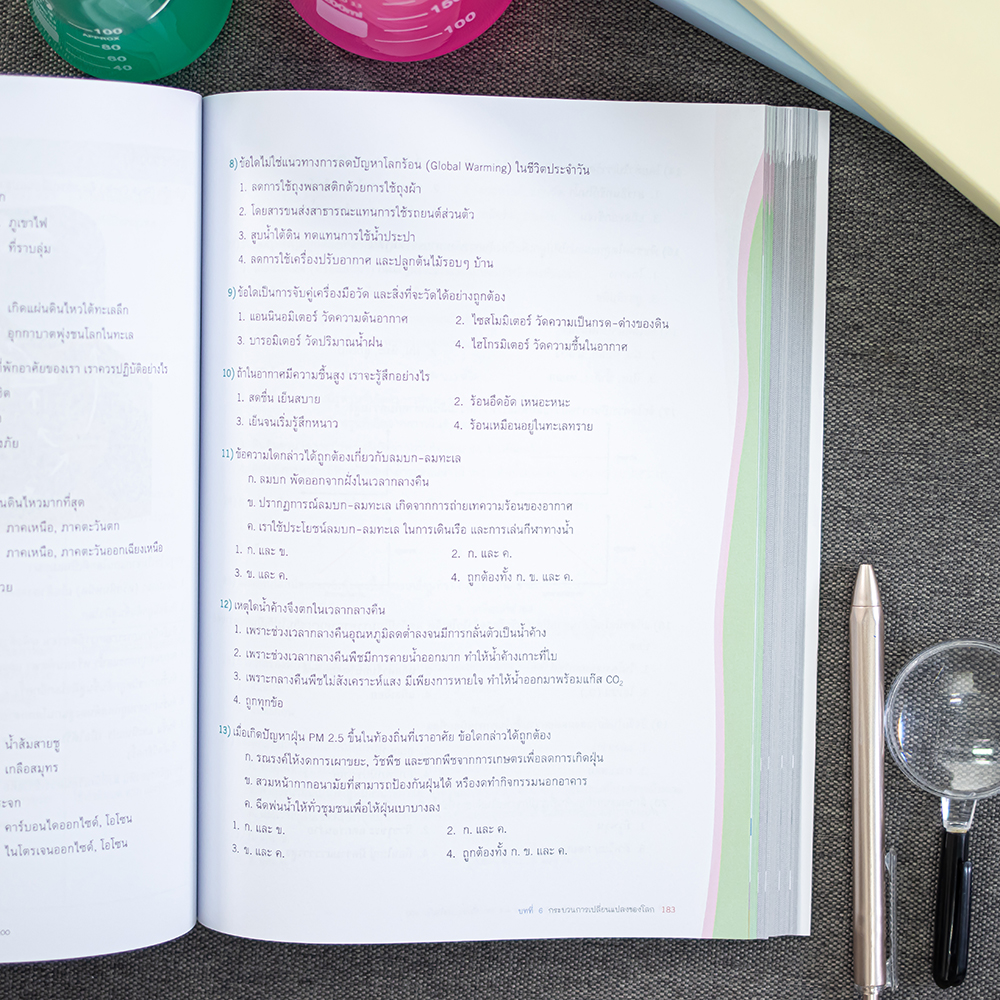 100
APPROX
80
60
40
150
100
ภูเขาไฟ
ที่ราบลุ่ม
เกิดแผ่นดินไหวใต้ทะเลลึก
อุกกาบาตพุ่งชนโลกในทะเล
ที่พักอาศัยของเรา เราควรปฏิบัติอย่างไร
นดินไหวมากที่สุด
ภาคเหนือ, ภาคตะวันตก
ภาคเหนือ, ภาคตะวันออกเฉียงเหนือ
น้ำส้มสายชู
เกลือสมุทร
คาร์บอนไดออกไซด์, โอโซน
ไนโตรเจนออกไซด์, โอโซน
8) ข้อใดไม่ใช่แนวทางการลดปัญหาโลกร้อน (Global Warming) ในชีวิตประจำวัน
1. ลดการใช้ถุงพลาสติกด้วยการใช้ถุงผ้า
2. โดยสารขนส่งสาธารณะแทนการใช้รถยนต์ส่วนตัว
3. สูบน้ำใต้ดิน ทดแทนการใช้น้ำประปา
4. ลดการใช้เครื่องปรับอากาศ และปลูกต้นไม้รอบๆ บ้าน
9) ข้อใดเป็นการจับคู่เครื่องมือวัด และสิ่งที่จะวัดได้อย่างถูกต้อง
1. แอนนินอมิเตอร์ วัดความดันอากาศ 2. ไซสโมมิเตอร์ วัดความเป็นกรด-ด่างของดิน
3. บารอมิเตอร์ วัดปริมาณน้ำฝน 4. ไฮโกรมิเตอร์ วัดความชื้นในอากาศ
10) ถ้าในอากาศมีความชื้นสูง เราจะรู้สึกอย่างไร
1. สดชื่น เย็นสบาย 2. ร้อนอึดอัด เหนอะหนะ
3. เย็นจนเริ่มรู้สึกหนาว 4. ร้อนเหมือนอยู่ในทะเลทราย
11) ข้อความใดกล่าวได้ถูกต้องเกี่ยวกับลมบก-ลมทะเล
ก. ลมบก พัดออกจากฝั่งในเวลากลางคืน
ข. ปรากฏการณ์ลมบก-ลมทะเล เกิดจากการถ่ายเทความร้อนของอากาศ
ค. เราใช้ประโยชน์ลมบก-ลมทะเล ในการเดินเรือ และการเล่นกีฬาทางน้ำ
1. ก. และ ข. 2. ก. และ ค.
3. ข. และ ค. 4. ถูกต้องทั้ง ก. ข. และ ค.
12) เหตุใดน้ำค้างจึงตกในเวลากลางคืน
1. เพราะช่วงเวลากลางคืนอุณหภูมิลดต่ำลงจนมีการกลั่นตัวเป็นน้ำค้าง
2. เพราะช่วงเวลากลางคืนพืชมีการคายน้ำออกมาก ทำให้น้ำค้างเกาะที่ใบ
3. เพราะกลางคืนพืชไม่สังเคราะห์แสง มีเพียงการหายใจ ทำให้น้ำออกมาพร้อมแก๊ส CO₂
4. ถูกทุกข้อ
13) เมื่อเกิดปัญหาฝุ่น PM 2.5 ขึ้นในท้องถิ่นที่เราอาศัย ข้อใดกล่าวได้ถูกต้อง
ก. รณรงค์ให้งดการเผาขยะ, วัชพืช และซากพืชจากการเกษตรเพื่อลดการเกิดฝุ่น
ข. สวมหน้ากากอนามัยที่สามารถป้องกันฝุ่นได้ หรืองดทำกิจกรรมนอกอาคาร
ค. ฉีดพ่นน้ำให้ทั่วชุมชนเพื่อให้ฝุ่นเบาบางลง
1. ก. และ ข. 2. ก. และ ค.
3. ข. และ ค. 4. ถูกต้องทั้ง ก. ข. และ ค.
บทที่ 6 กระบวนการเปลี่ยนแปลงของโลก 183